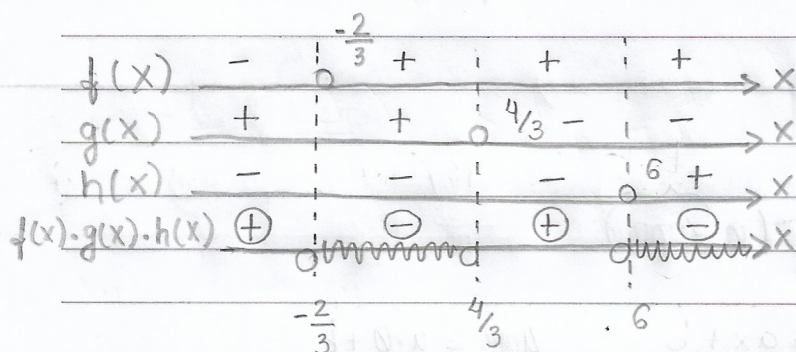 -2/3
f(x) - + + + x
g(x) + + 4/3 - - x
h(x) - - - 6 + x
f(x)·g(x)·h(x) + - + - x
-2/3 4/3 6